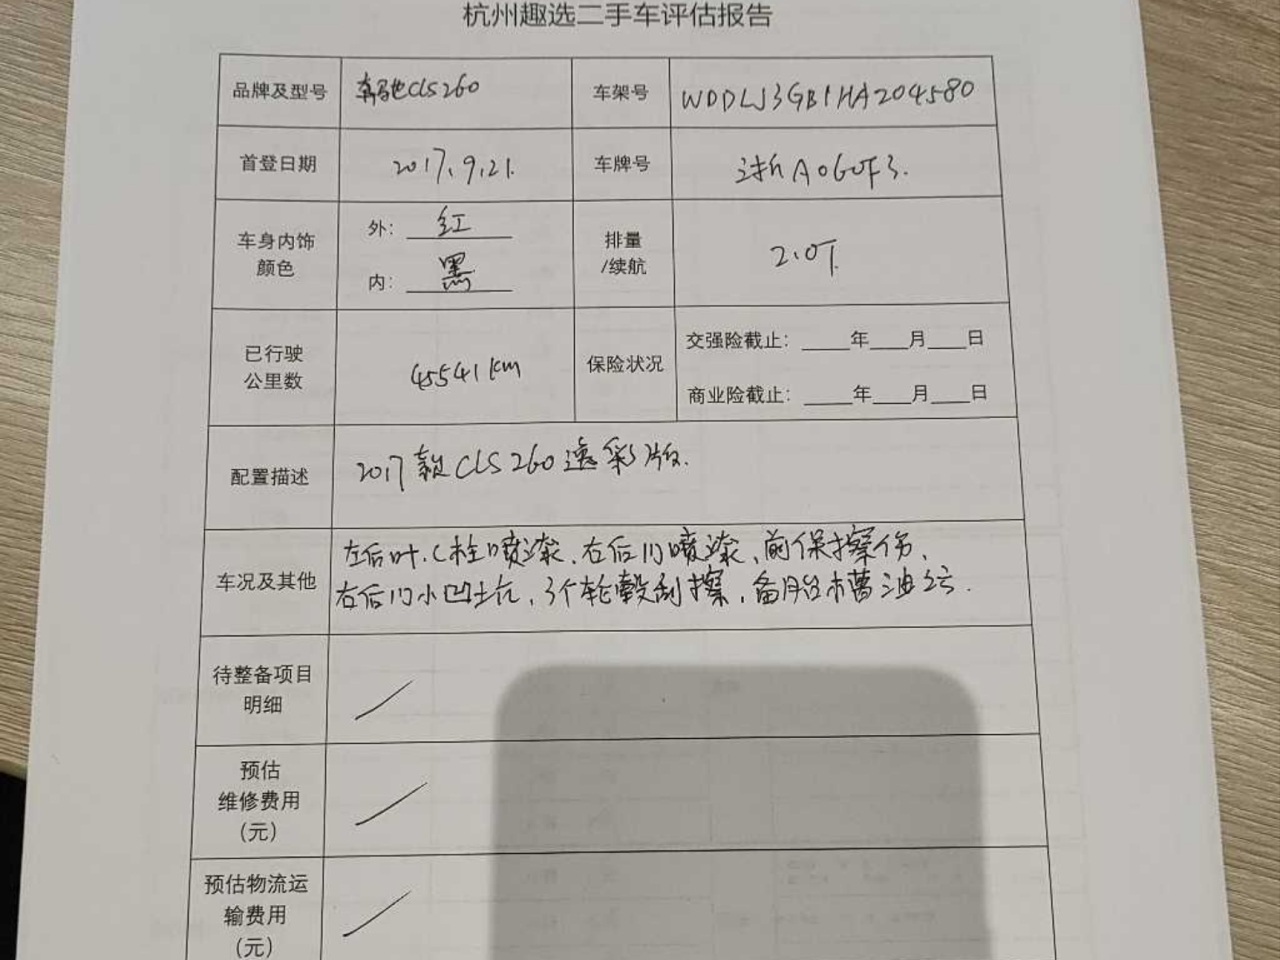 杭州趣选二手车评估报告
品牌及型号 奔驰CLS260 车架号 WDDLJ3GB1HA204580
首登日期 2017.9.21. 车牌号 浙A0G0F3.
车身内饰
颜色
外: 红
内: 黑
排量
/续航
2.0T
已行驶
公里数
45541km
保险状况
交强险截止: ____年____月____日
商业险截止: ____年____月____日
配置描述 2017款CLS260逸彩版.
车况及其他
左后叶.C柱喷漆、右后门喷漆、前保擦伤、
右后门小凹土坑,3个轮毂刮擦,备胎槽油污.
待整备项目
明细
预估
维修费用
(元)
预估物流运
输费用
(元)